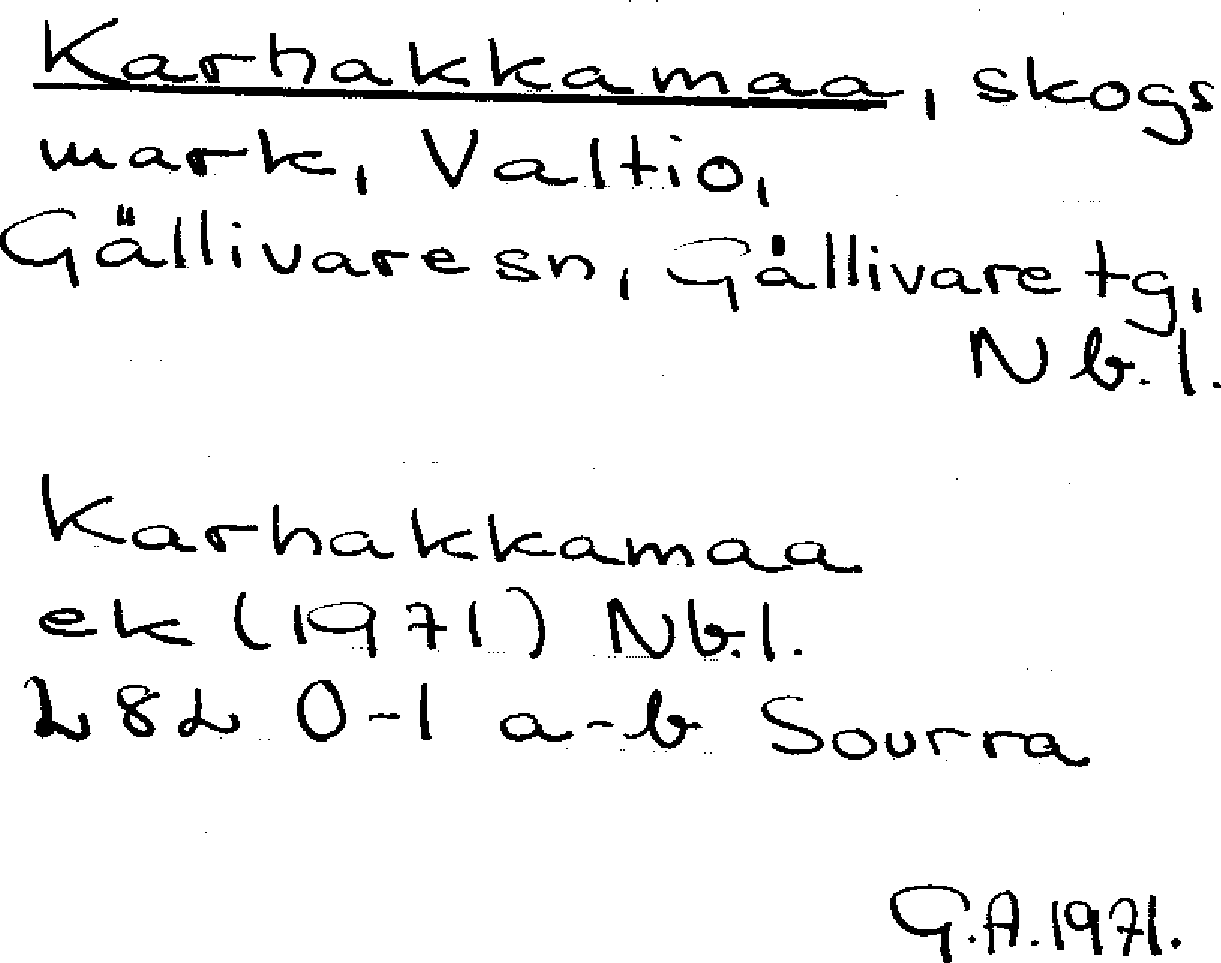 Karhakkamaa, skogs
mark, Valtio,
Gällivare sn, Gällivare tg,
Nb.l.
Karhakkamaa
ek (1971) Nb.l.
28L 0-1 a-b Sourra
G.A.1971.